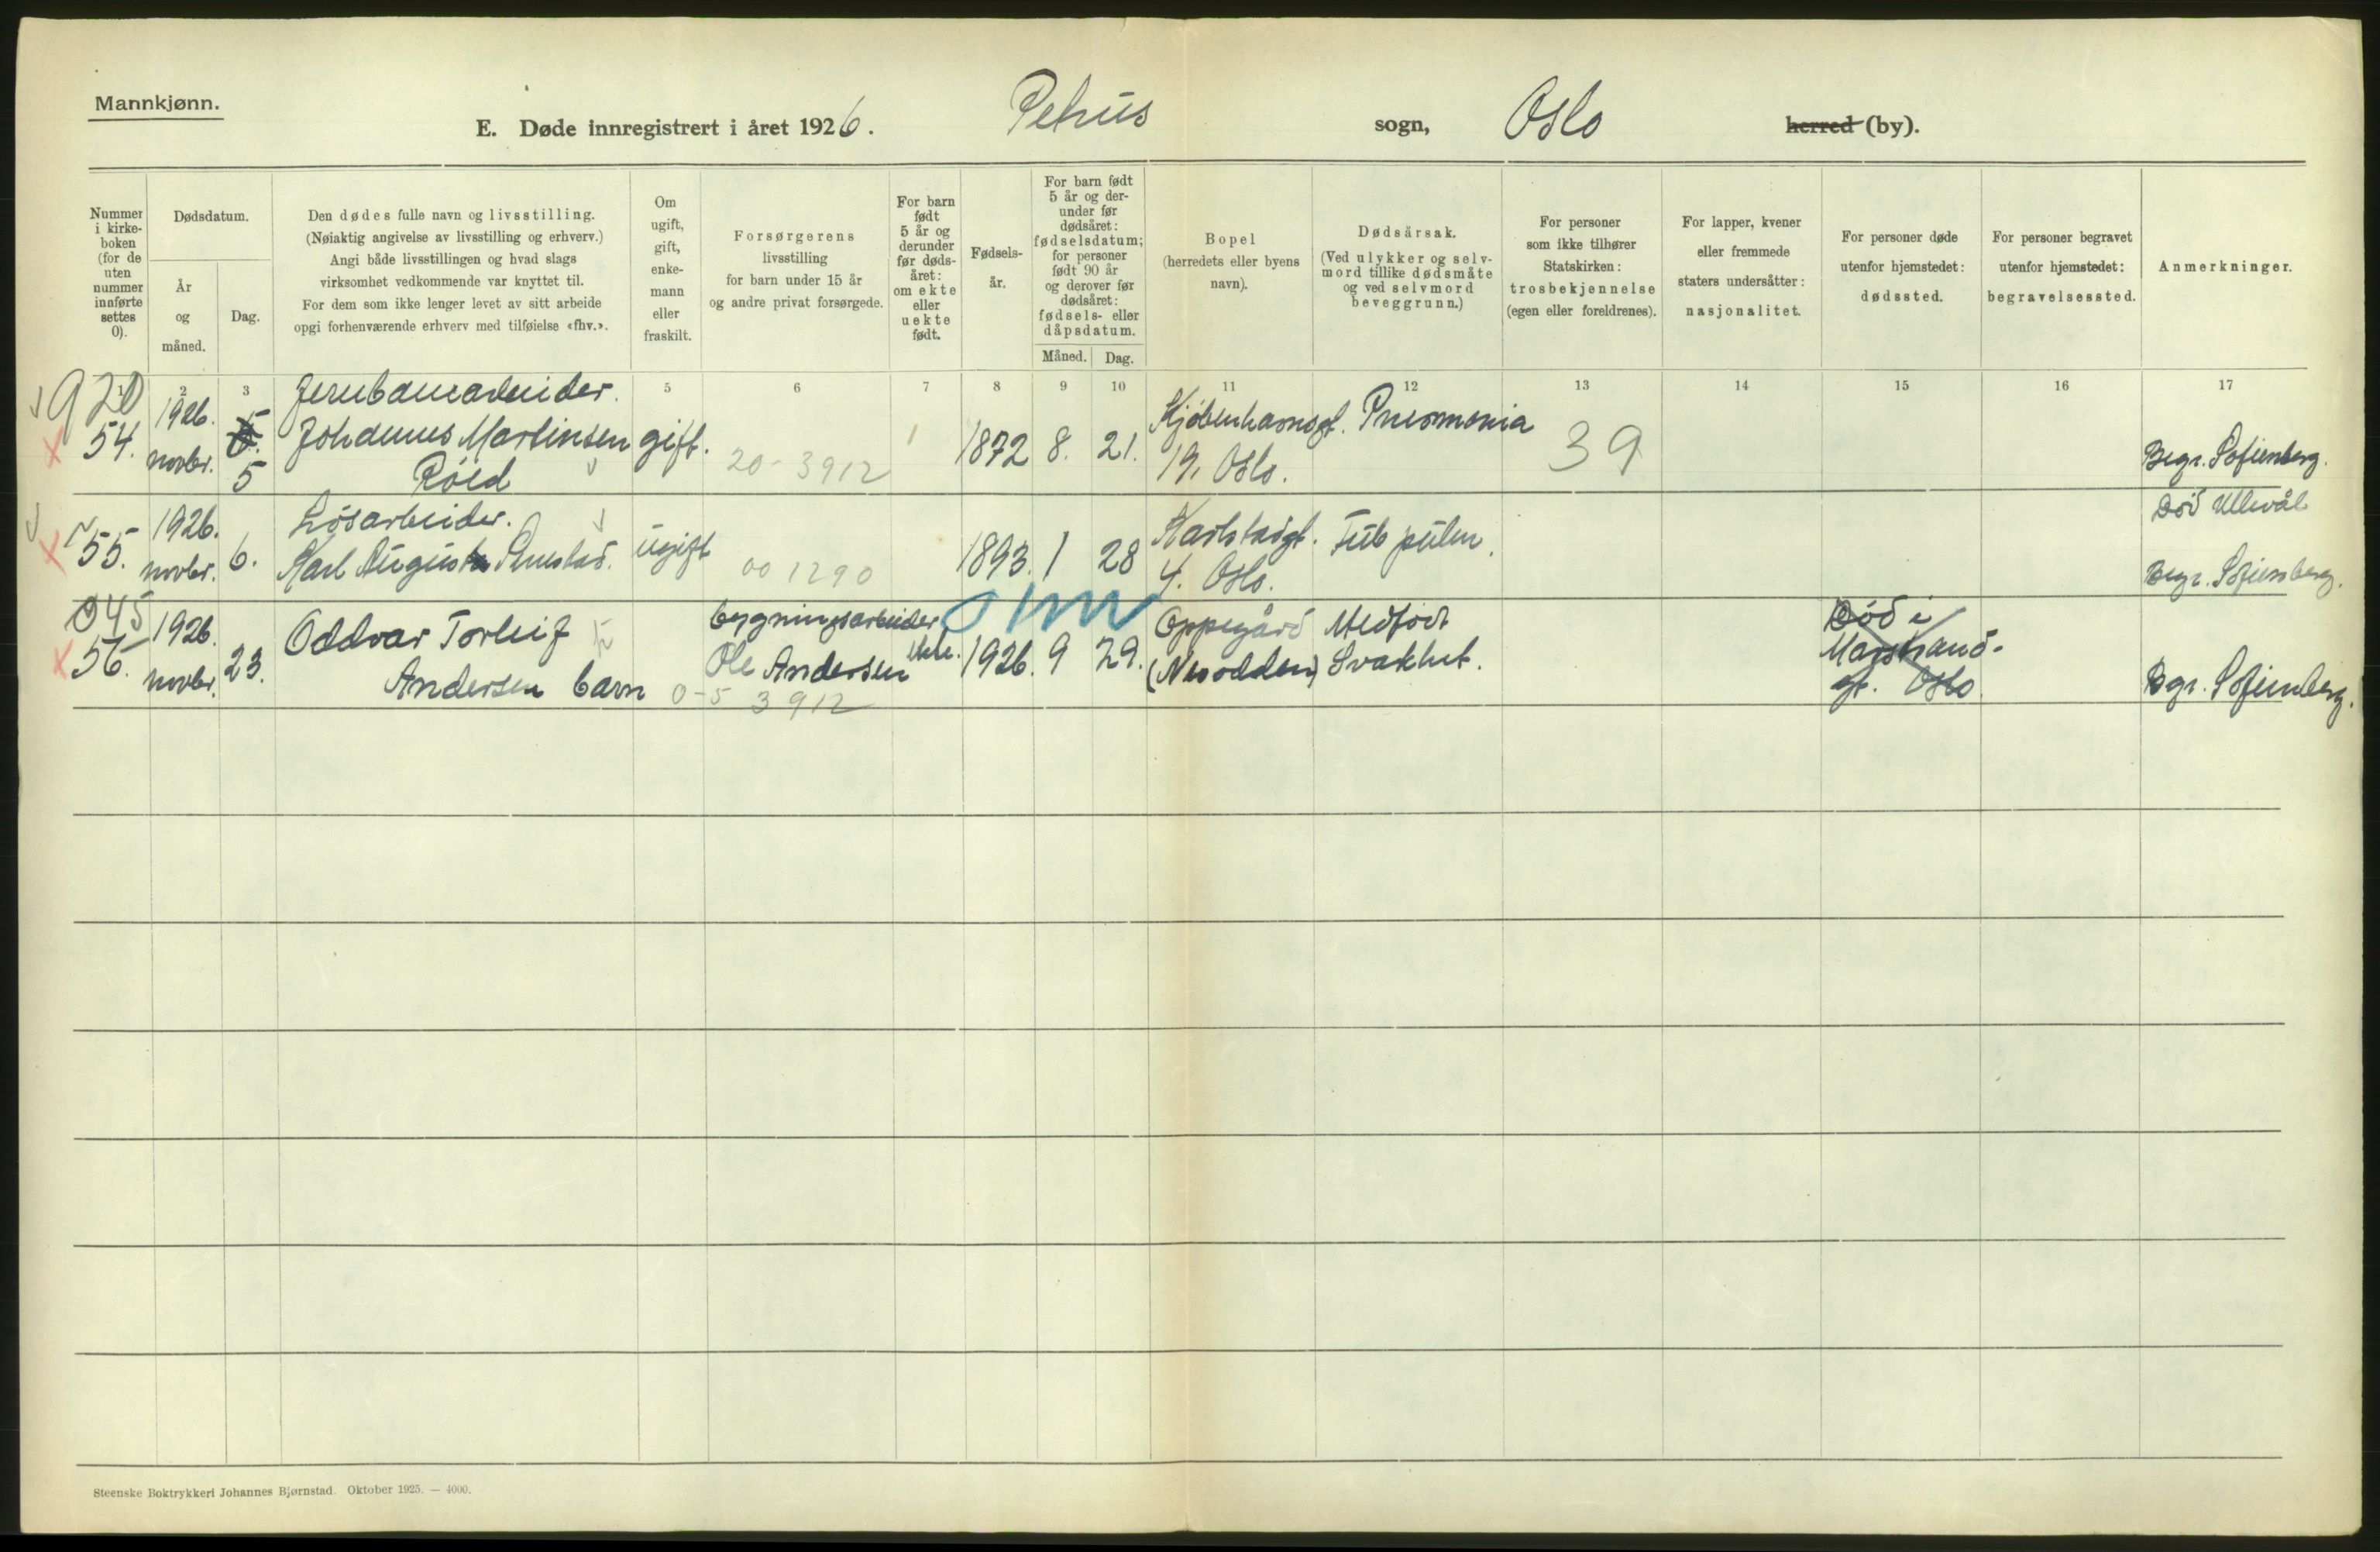 Mannkjønn.
E. Døde innregistrert i året 1926. Petrus sogn, Oslo herred (by).
Nummer i kirke-boken (for de uten nummer innførte settes 0).
Dødsdatum.
År og måned.
Dag.
Den dødes fulle navn og livsstilling.
(Nøiaktig angivelse av livsstilling og erhverv.)
Angi både livsstillingen og hvad slags
virksomhet vedkommende var knyttet til.
For dem som ikke lenger levet av sitt arbeide
opgi forhenværende erhverv med tilføielse «fhv.».
Om ugift, gift, enke-mann eller fraskilt.
Forsørgerens
livsstilling
for barn under 15 år
og andre privat forsørgede.
For barn født 5 år og derunder før døds-året: om ekte eller uekte født.
Fødsels-år.
For barn født 5 år og der-under før dødsåret: fødselsdatum; for personer født 90 år og derover før dødsåret: fødsels- eller dåpsdatum.
Måned. Dag.
Bopel
(herredets eller byens
navn).
Dødsårsak.
(Ved ulykker og selv-
mord tillike dødsmåte
og ved selvmord
beveggrunn.)
For personer
som ikke tilhører
Statskirken:
trosbekjennelse
(egen eller foreldrenes).
For lapper, kvener
eller fremmede
staters undersåtter:
nasjonalitet.
For personer døde
utenfor hjemstedet:
dødssted.
For personer begravet
utenfor hjemstedet:
begravelsessted.
Anmerkninger.
2 3 5 6 7 8 9 10 11 12 13 14 15 16 17
920
54. 1926. novbr. 5
Jernbanearbeider.
Johannes Martinsen
Røed
gift. 20-3912 1872 8. 21.
Kjøbenhavnsgt.
19, Oslo.
Pneomonia 39
Begr. Sofienberg.
55. 1926. novbr. 6.
Løsarbeider.
Karl August
ugift 001290 1893. 1 28
Karlstadgt.
4. Oslo.
Tub pulm.
Død Ullevål
Begr. Sofienberg.
045
56. 1926. novbr. 23.
Oddvar Torleif
Andersen barn
0-5 3912
bygningsarbeider
Ole Andersen
ekte. 1926. 9 29.
Oppegård
(Nesodden)
Medfødt
Svakhet.
Død i
Marstrand-
gt. Oslo.
Bgr. Sofienberg.
Steenske Boktrykkeri Johannes Bjørnstad. Oktober 1925. — 4000.